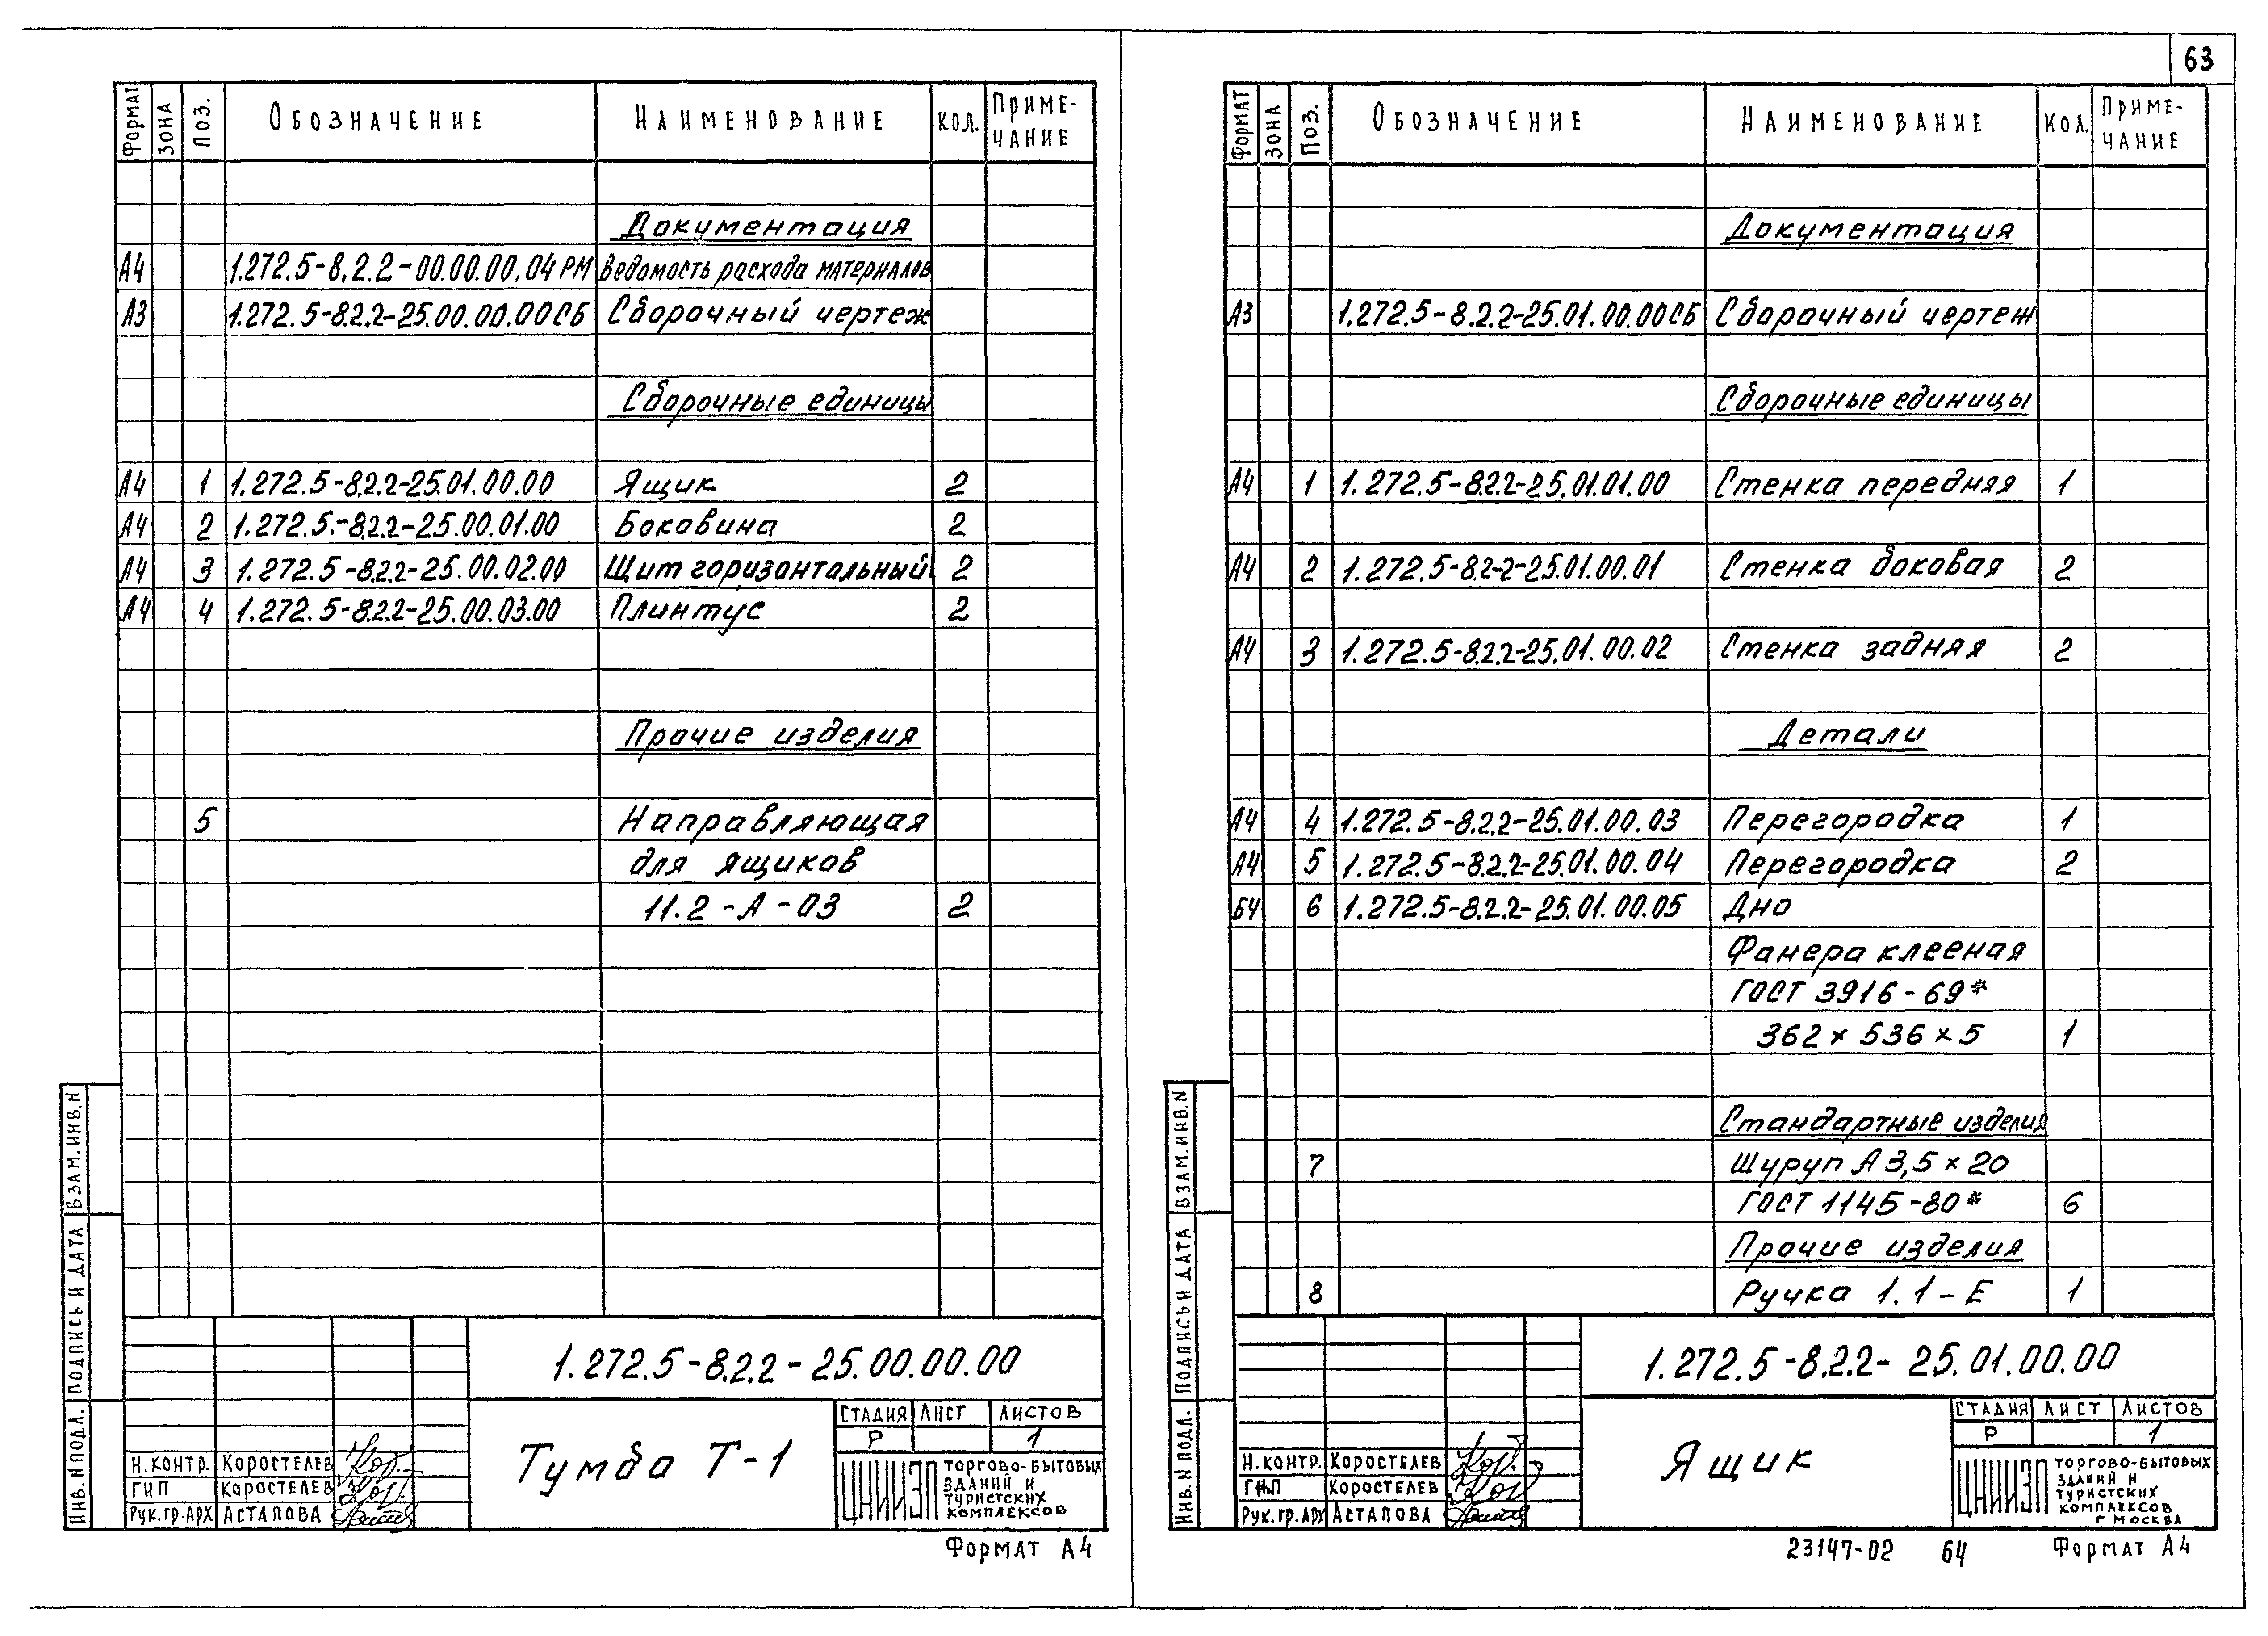 63
ФОРМАТ ЗОНА ПОЗ. ОБОЗНАЧЕНИЕ НАИМЕНОВАНИЕ КОЛ. ПРИМЕ-
ЧАНИЕ
Документация
А4 1.272.5-8.2.2-00.00.00.04РМ Ведомость расхода материалов
А3 1.272.5-8.2.2-25.00.00.00СБ Сборочный чертеж
Сборочные единицы
А4 1 1.272.5-8.2.2-25.01.00.00 Ящик 2
А4 2 1.272.5.-8.2.2-25.00.01.00 Боковина 2
А4 3 1.272.5-8.2.2-25.00.02.00 Щит горизонтальный 2
А4 4 1.272.5-8.2.2-25.00.03.00 Плинтус 2
Прочие изделия
5 Направляющая
для ящиков
11.2-А-03 2
ВЗАМ.ИНВ.N
ПОДПИСЬ И ДАТА
ИНВ.N ПОДЛ.
1.272.5-8.2.2-25.00.00.00
Тумба Т-1
СТАДИЯ ЛИСТ ЛИСТОВ
Р 1
Н.КОНТР. КОРОСТЕЛЕВ
ГИП КОРОСТЕЛЕВ
РУК.ГР.АРХ АСТАПОВА
ЦНИИЭП ТОРГОВО-БЫТОВЫХ
ЗДАНИЙ И
ТУРИСТСКИХ
КОМПЛЕКСОВ
ФОРМАТ А4
ФОРМАТ ЗОНА ПОЗ. ОБОЗНАЧЕНИЕ НАИМЕНОВАНИЕ КОЛ. ПРИМЕ-
ЧАНИЕ
Документация
А3 1.272.5-8.2.2-25.01.00.00СБ Сборочный чертеж
Сборочные единицы
А4 1 1.272.5-8.2.2-25.01.01.00 Стенка передняя 1
А4 2 1.272.5-8.2-2-25.01.00.01 Стенка боковая 2
А4 3 1.272.5-8.2.2-25.01.00.02 Стенка задняя 2
Детали
А4 4 1.272.5-8.2.2-25.01.00.03 Перегородка 1
А4 5 1.272.5-8.2.2-25.01.00.04 Перегородка 2
БЧ 6 1.272.5-8.2.2-25.01.00.05 Дно
Фанера клееная
ГОСТ 3916-69*
362×536×5 1
Стандартные изделия
7 Шуруп А 3,5×20
ГОСТ 1145-80* 6
Прочие изделия
8 Ручка 1.1-Е 1
ВЗАМ.ИНВ.N
ПОДПИСЬ И ДАТА
ИНВ.N ПОДЛ.
1.272.5-8.2.2-25.01.00.00
Ящик
СТАДИЯ ЛИСТ ЛИСТОВ
Р 1
Н.КОНТР. КОРОСТЕЛЕВ
ГИП КОРОСТЕЛЕВ
РУК.ГР.АРХ АСТАПОВА
ЦНИИЭП ТОРГОВО-БЫТОВЫХ
ЗДАНИЙ И
ТУРИСТСКИХ
КОМПЛЕКСОВ
Г МОСКВА
23147-02 64 ФОРМАТ А4